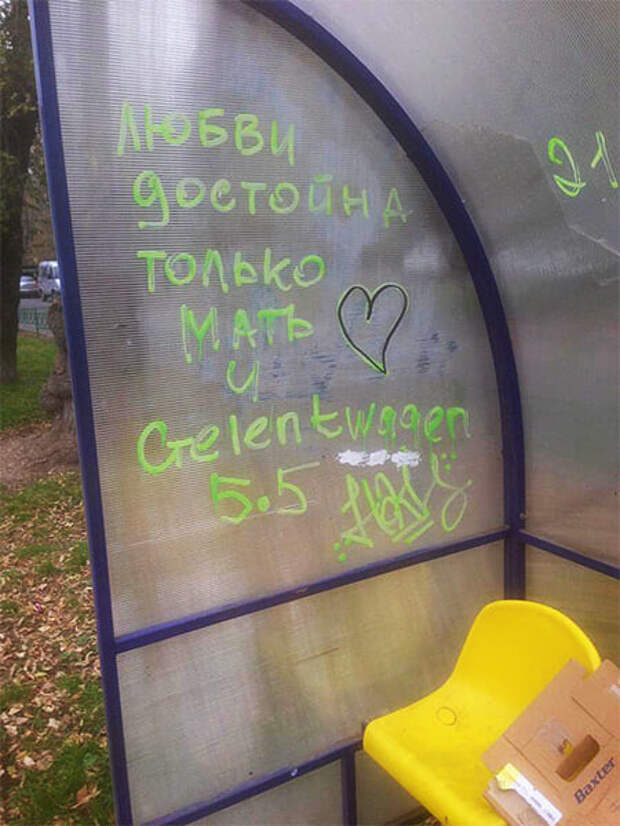 ЛЮБВИ
ДОСТОЙНА
ТОЛЬКО
МАТЬ
И
Gelentwagen
5.5
21
Baxter